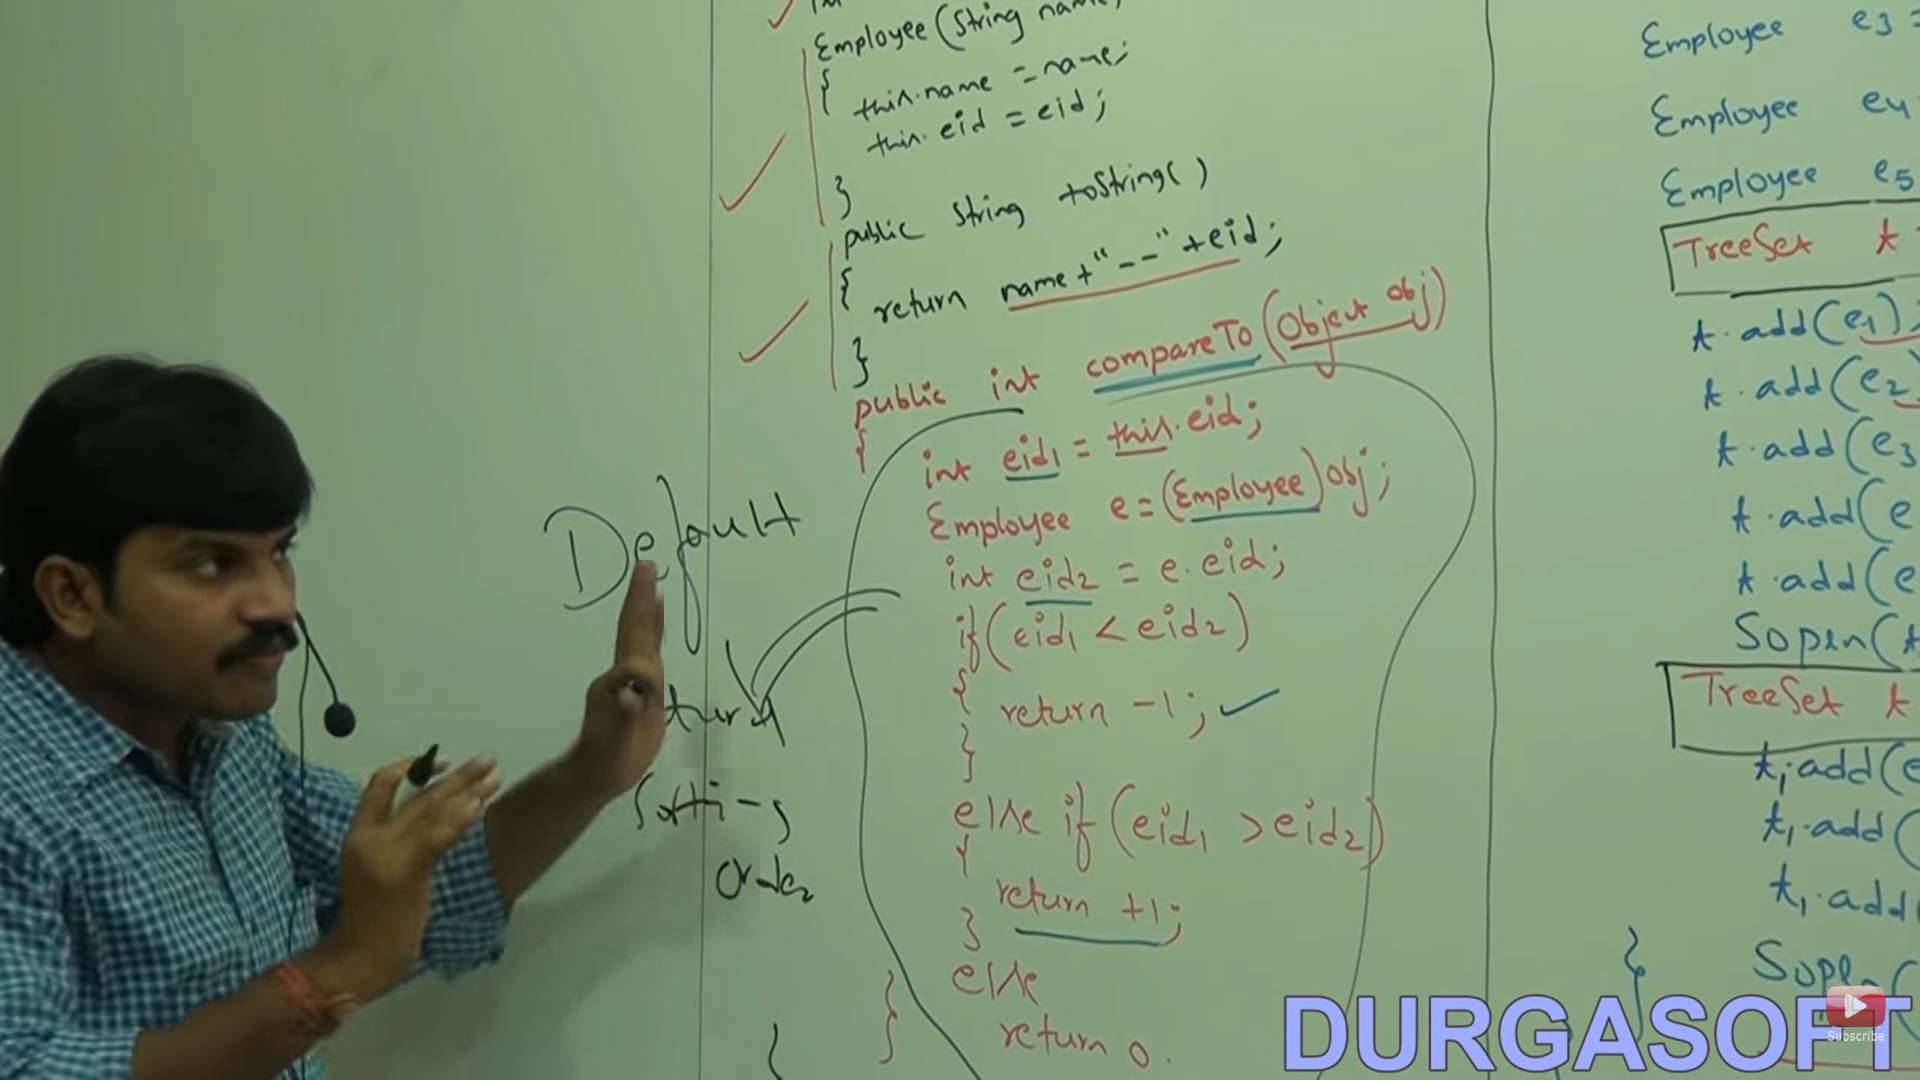 Employee(String name,
{
this.name = name;
this.eid = eid;
}
public String toString()
{
return name+"--"+eid;
}
public int compareTo(Object obj)
{
int eid1 = this.eid;
Employee e=(Employee)obj;
int eid2 = e.eid;
if(eid1 < eid2)
{
return -1;
}
else if(eid1 > eid2)
{
return +1;
}
else
return 0.
}
}
Default
Sorting
Order
Employee e3 =
Employee e4
Employee e5
TreeSet t
t.add(e1);
t.add(e2)
t.add(e3
t.add(e
t.add(e
Sopln(t
TreeSet t
t1.add(e
t1.add(
t1.add(
Sopln(
}
DURGASOFT
Subscribe